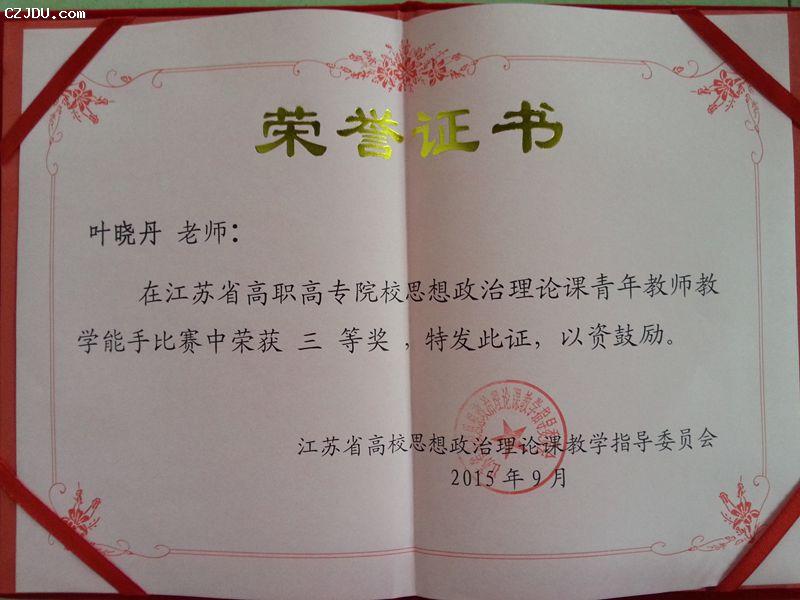 CZJDU.com
荣誉证书
叶晓丹 老师：
在江苏省高职高专院校思想政治理论课青年教师教
学能手比赛中荣获 三 等奖 ，特发此证，以资鼓励。
江苏省高校思想政治理论课教学指导委员会
2015 年 9 月
CZJDU.com